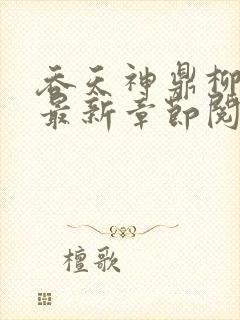 吞天神鼎柳
最新章节阅
檀歌